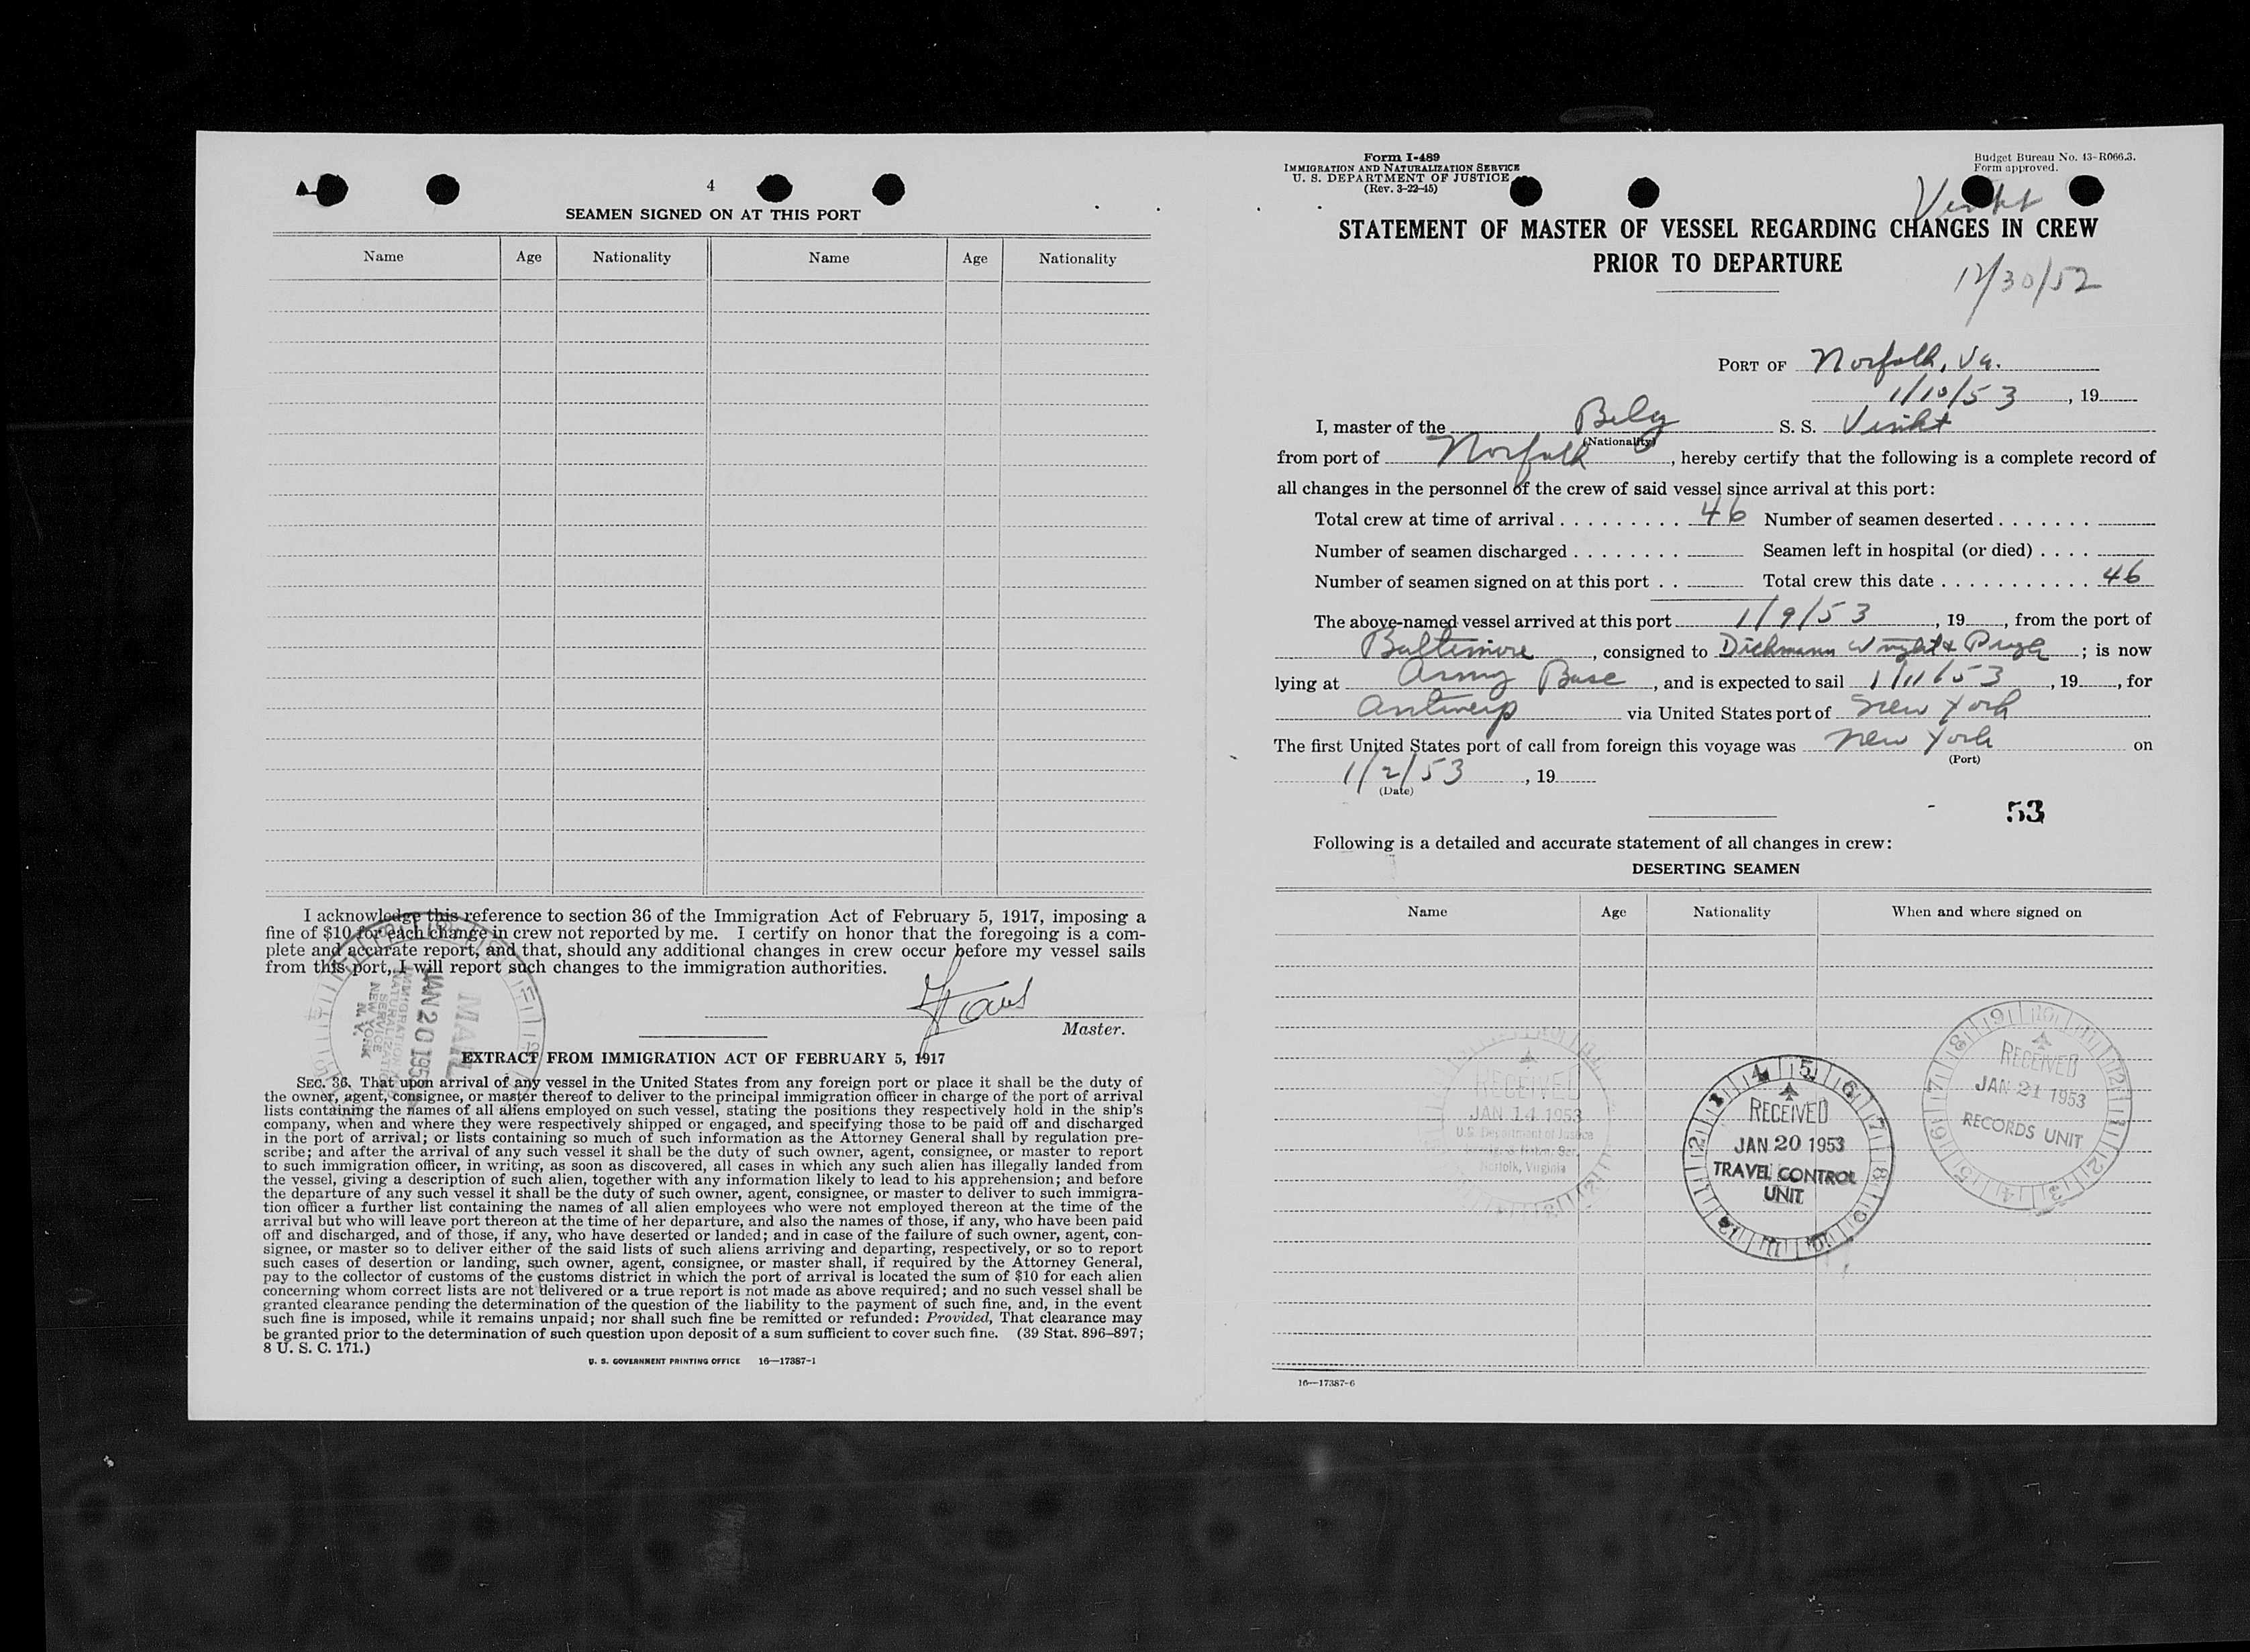 4
SEAMEN SIGNED ON AT THIS PORT
Name Age Nationality Name Age Nationality
I acknowledge this reference to section 36 of the Immigration Act of February 5, 1917, imposing a
fine of $10 for each change in crew not reported by me. I certify on honor that the foregoing is a com-
plete and accurate report, and that, should any additional changes in crew occur before my vessel sails
from this port, I will report such changes to the immigration authorities.
Master.
MAIL
JAN 20 195
IMMIGRATION
NATURALIZATION
SERVICE
NEW YORK
N. Y.
EXTRACT FROM IMMIGRATION ACT OF FEBRUARY 5, 1917
SEC. 36. That upon arrival of any vessel in the United States from any foreign port or place it shall be the duty of
the owner, agent, consignee, or master thereof to deliver to the principal immigration officer in charge of the port of arrival
lists containing the names of all aliens employed on such vessel, stating the positions they respectively hold in the ship's
company, when and where they were respectively shipped or engaged, and specifying those to be paid off and discharged
in the port of arrival; or lists containing so much of such information as the Attorney General shall by regulation pre-
scribe; and after the arrival of any such vessel it shall be the duty of such owner, agent, consignee, or master to report
to such immigration officer, in writing, as soon as discovered, all cases in which any such alien has illegally landed from
the vessel, giving a description of such alien, together with any information likely to lead to his apprehension; and before
the departure of any such vessel it shall be the duty of such owner, agent, consignee, or master to deliver to such immigra-
tion officer a further list containing the names of all alien employees who were not employed thereon at the time of the
arrival but who will leave port thereon at the time of her departure, and also the names of those, if any, who have been paid
off and discharged, and of those, if any, who have deserted or landed; and in case of the failure of such owner, agent, con-
signee, or master so to deliver either of the said lists of such aliens arriving and departing, respectively, or so to report
such cases of desertion or landing, such owner, agent, consignee, or master shall, if required by the Attorney General,
pay to the collector of customs of the customs district in which the port of arrival is located the sum of $10 for each alien
concerning whom correct lists are not delivered or a true report is not made as above required; and no such vessel shall be
granted clearance pending the determination of the question of the liability to the payment of such fine, and, in the event
such fine is imposed, while it remains unpaid; nor shall such fine be remitted or refunded: Provided, That clearance may
be granted prior to the determination of such question upon deposit of a sum sufficient to cover such fine. (39 Stat. 896–897;
8 U. S. C. 171.)
U. S. GOVERNMENT PRINTING OFFICE 16—17387-1
Form I-489
IMMIGRATION AND NATURALIZATION SERVICE
U. S. DEPARTMENT OF JUSTICE
(Rev. 3-22-45)
Budget Bureau No. 43-R066.3.
Form approved.
STATEMENT OF MASTER OF VESSEL REGARDING CHANGES IN CREW
PRIOR TO DEPARTURE
12/30/52
PORT OF Norfolk, Va.
1/10/53, 19
I, master of the Belg S. S. Virikt
(Nationality)
from port of Norfolk, hereby certify that the following is a complete record of
all changes in the personnel of the crew of said vessel since arrival at this port:
Total crew at time of arrival 46 Number of seamen deserted
Number of seamen discharged Seamen left in hospital (or died)
Number of seamen signed on at this port Total crew this date 46
The above-named vessel arrived at this port 1/9/53, 19, from the port of
Baltimore, consigned to Dichmann Wright & Pugh; is now
lying at Army Base, and is expected to sail 1/11/53, 19, for
Antwerp via United States port of New York
The first United States port of call from foreign this voyage was New York on
(Port)
1/2/53, 19
(Date)
53
Following is a detailed and accurate statement of all changes in crew:
DESERTING SEAMEN
Name Age Nationality When and where signed on
RECEIVED
JAN 14 1953
U.S. Department of Justice
Norfolk, Virginia
RECEIVED
JAN 20 1953
TRAVEL CONTROL
UNIT
RECEIVED
JAN 21 1953
RECORDS UNIT
16—17387-6